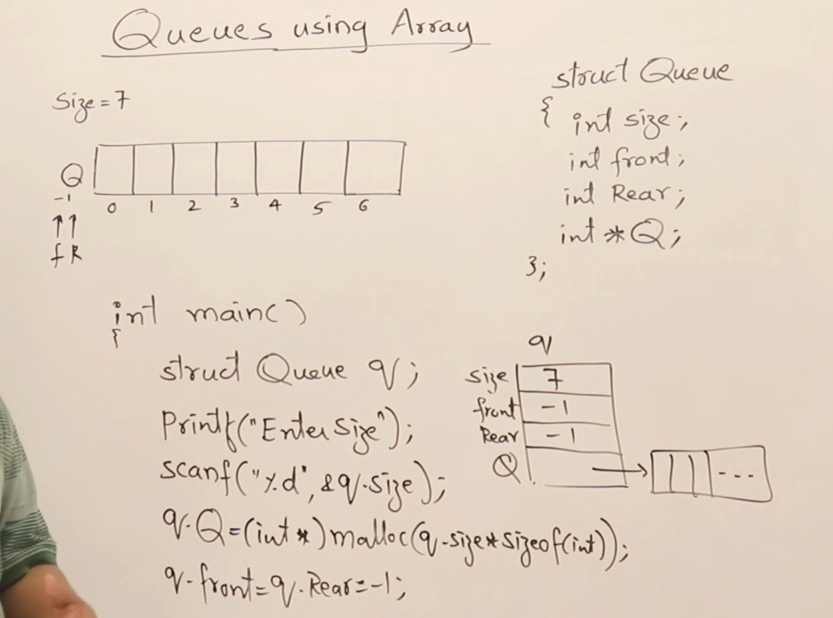 Queues using Array
Size = 7
Q
-1
0 1 2 3 4 5 6
f R
struct Queue
{ int size;
int front;
int Rear;
int *Q;
};
int main()
{
struct Queue q;
Printf("Enter Size");
scanf("%d", &q.size);
q.Q=(int*)malloc(q.size*sizeof(int));
q.front=q.Rear=-1;
q
size 7
front -1
Rear -1
Q